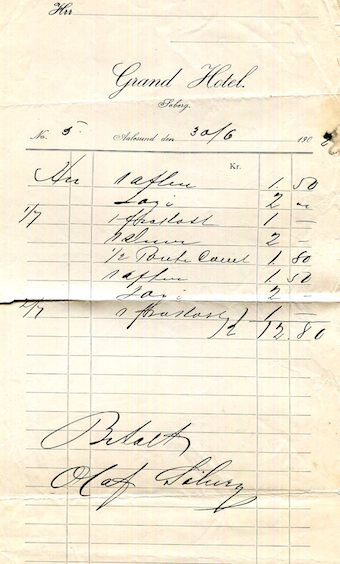 Herr
Grand Hotel.
Søberg.
No. 5. Aalesund den 30/6 1902
Kr.
1 aften 1. 50
Logi 2 -
1/7 1 Frokost 1 -
2 -
1/2 1. 80
1 aften 1. 50
Logi 2 -
2/7 1 Frokost 1 -
12. 80
Betalt
Olaf Søberg